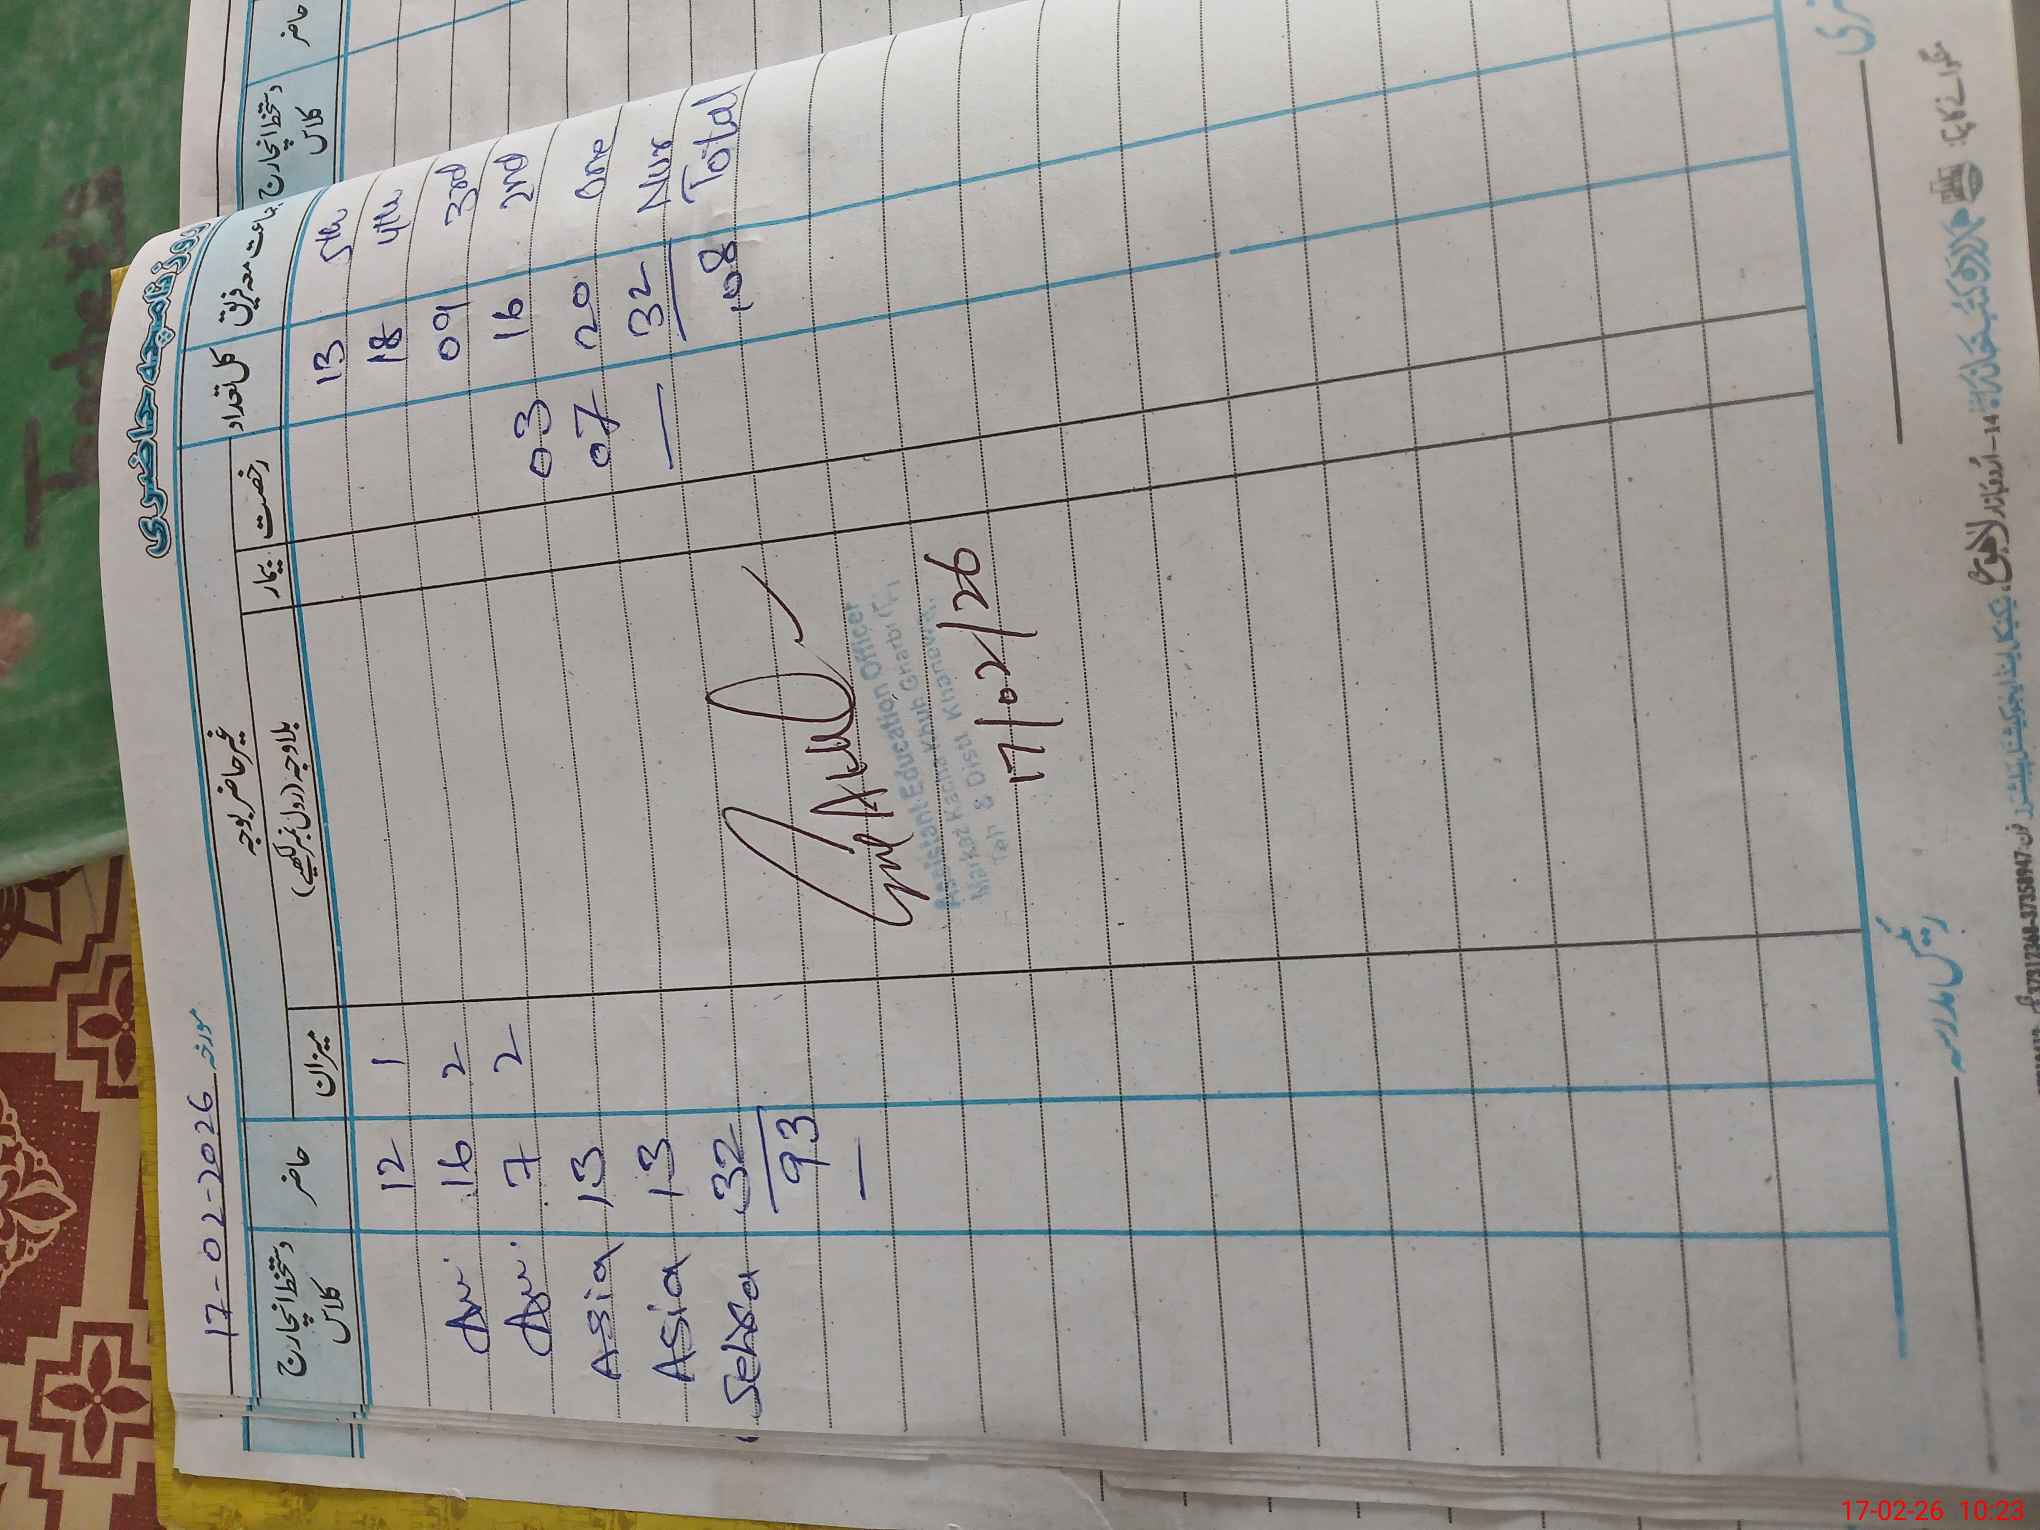 روزنامچہ حاضری
مورخہ 17-02-2026
جماعت معہ فریق کل تعداد غیر حاضر بوجہ حاضر دستخط انچارج کلاس
رخصت بیمار بلاوجہ (رول نمبر لکھیے) میزان
دستخط انچارج کلاس
حاضر
5th 13 1 12
4th 18 2 16
3rd 09 2 7
2nd 16 03 13 Asia
One 20 07 13 Asia
Nur 32 — 32 Sehra
Total 108 93
Assistant Education Officer
Teh & Distt Khanewal
17/02/26
رئیس مدرسہ
14-اردو بازار لاہور
فون 37358947-37312368
17-02-26 10:23